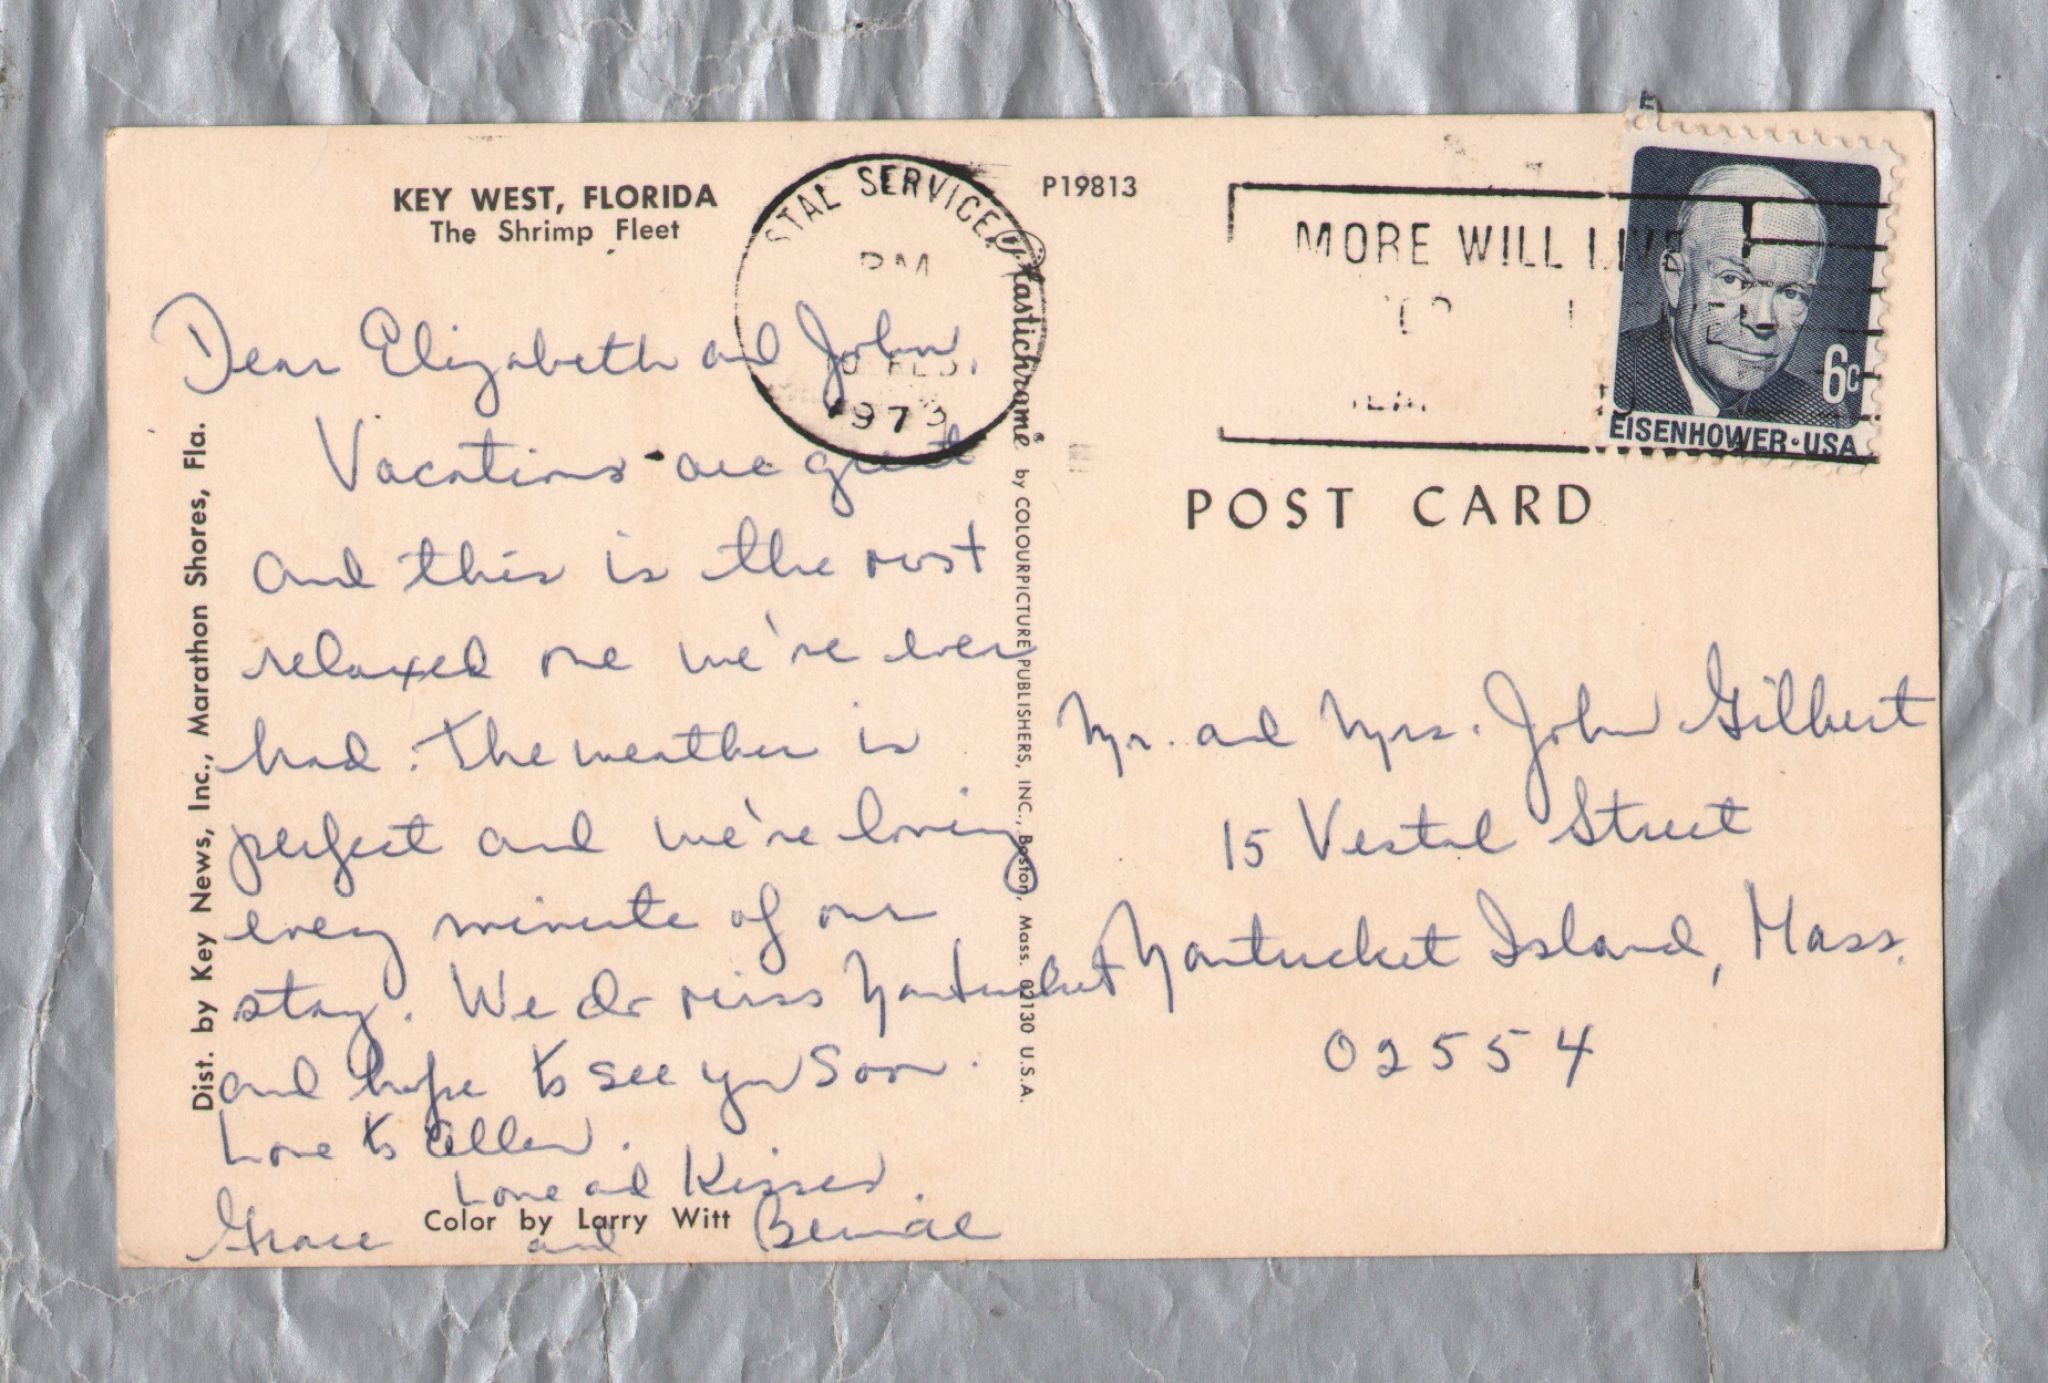 KEY WEST, FLORIDA
The Shrimp Fleet
STAL SERVICE
PM
1973
P19813
MORE WILL LIVE
6c
EISENHOWER·USA
POST CARD
Dear Elizabeth and John,
Vacations are great
and this is the most
relaxed one we've ever
had. The weather is
perfect and we're loving
every minute of our
stay. We do miss Nantucket
and hope to see you soon.
Love to Allen.
Love and Kisses.
Grace and Bernice
Color by Larry Witt
Dist. by Key News, Inc., Marathon Shores, Fla.
Plastichrome® by COLOURPICTURE PUBLISHERS, INC., Boston, Mass. 02130 U.S.A.
Mr. and Mrs. John Gilbert
15 Vestal Street
Nantucket Island, Mass.
02554